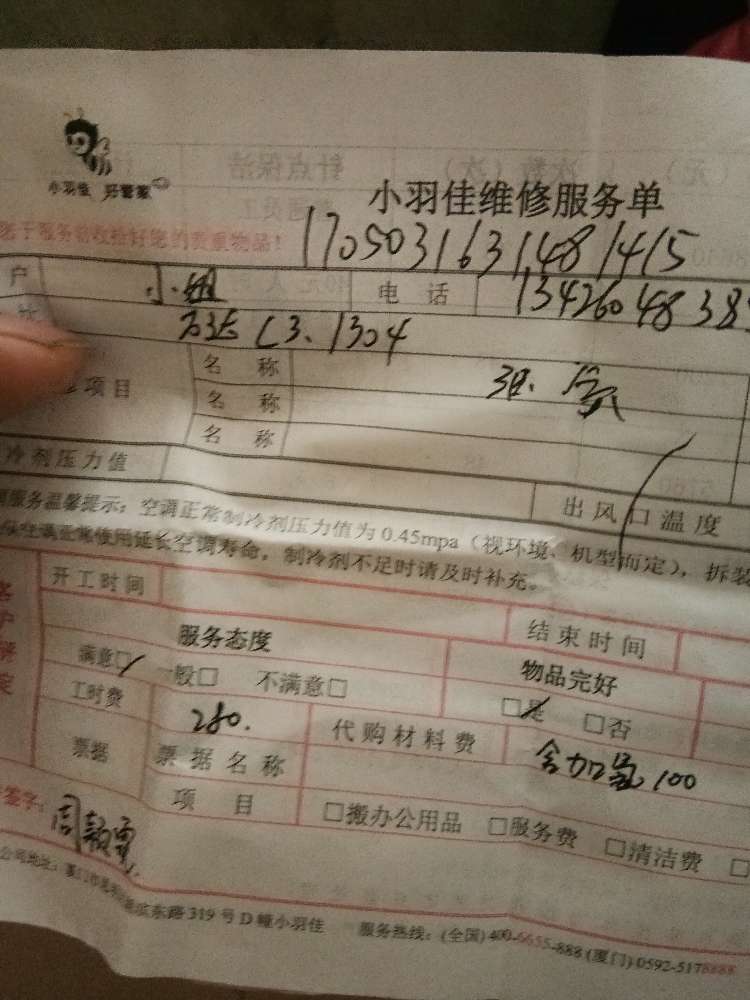 小羽佳 好管家
小羽佳维修服务单
1705031631481415
户 小姐 电话 1342604838
万达 C3.1304
项目 名称
名称
名称
冷剂压力值 出风口温度
服务温馨提示：空调正常制冷剂压力值为 0.45mpa（视环境、机型而定），拆装
空调正常使用延长空调寿命，制冷剂不足时请及时补充。
开工时间 结束时间
服务态度 物品完好
满意□ 一般□ 不满意□ □是 □否
工时费 280. 代购材料费 含加氟100
票据 票据名称
项目 □搬办公用品 □服务费 □清洁费 □
签字：
公司地址：厦门市 滨东路 319 号 D 幢小羽佳 服务热线：(全国)400-6655-888 (厦门)0592-5178888